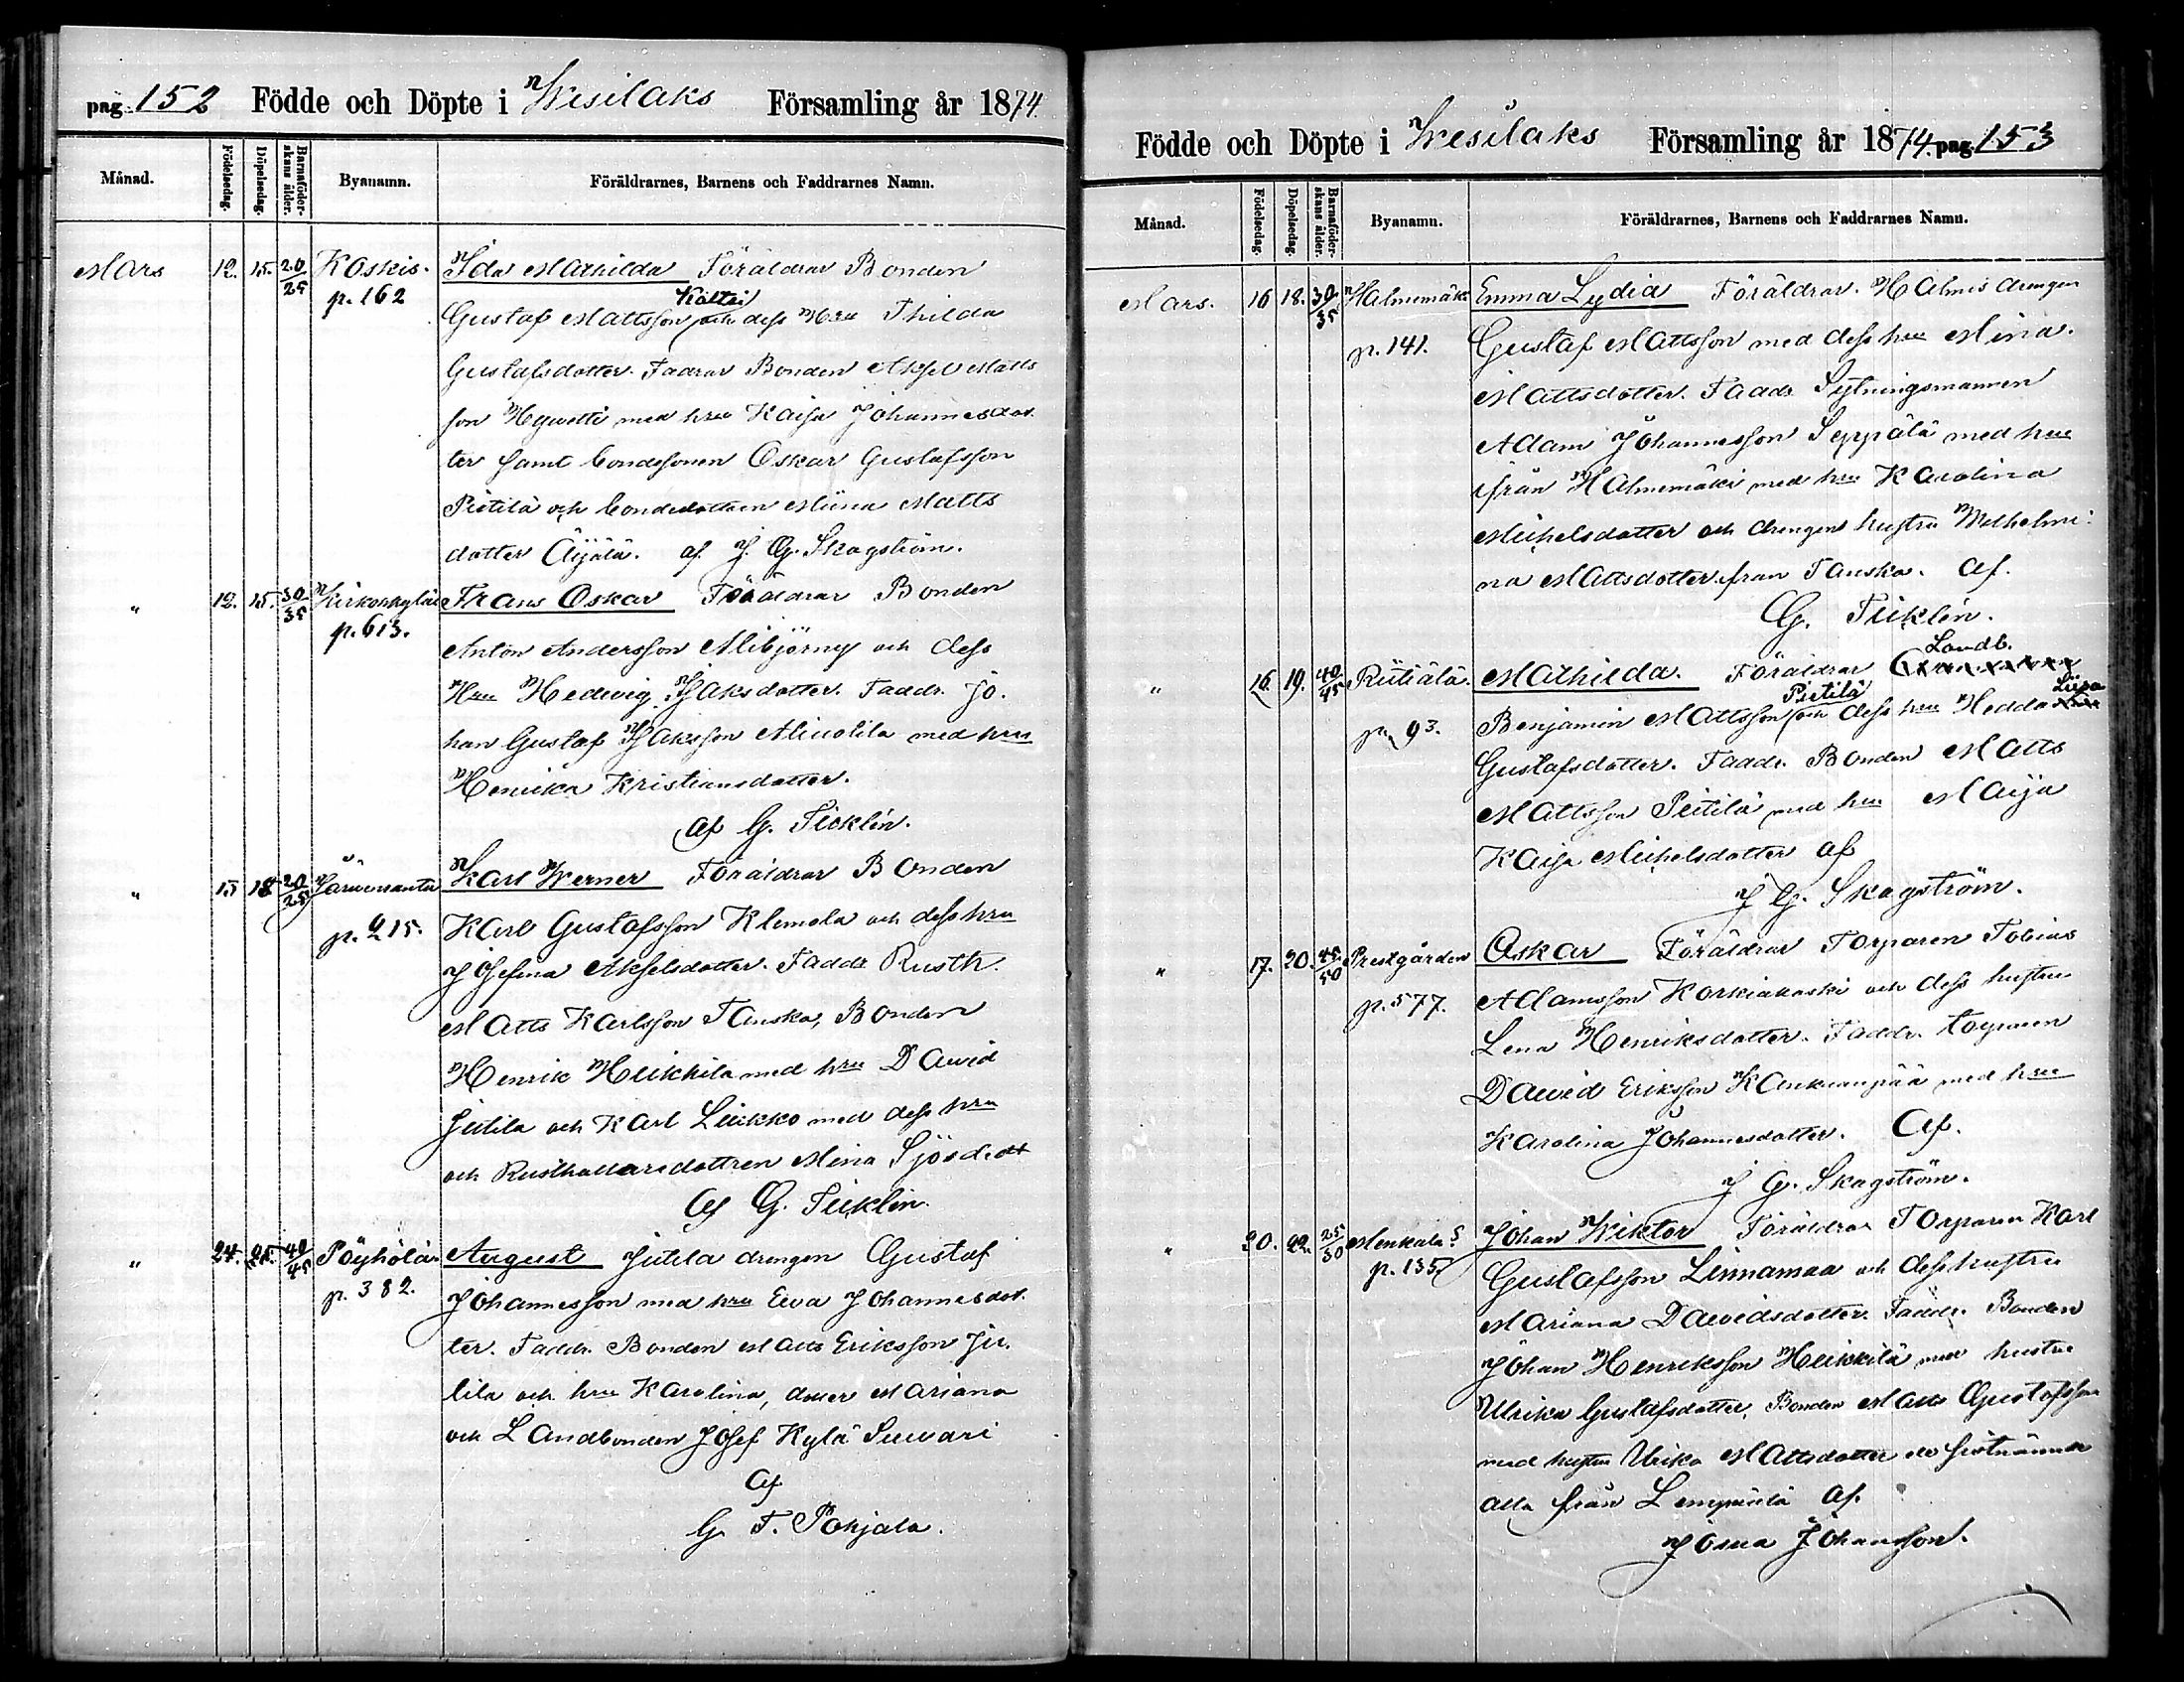 pag. 152 Födde och Döpte i Wesilaks Församling år 1874.
Månad. Födelsedag. Döpelsedag. Barnaföderskans ålder. Byanamn. Föräldrarnes, Barnens och Faddrarnes Namn.
Mars 12. 15. 20/25 Koskis. Ida Mathilda Föräldrar Bonden
p. 162 Költsi
Gustaf Mattsson och dess Hru Thilda
Gustafsdotter. Fadrar Bonden Aksel Matts
son Hywetti med hru Kaisa Johannesdot
ter samt bondesonen Oskar Gustafsson
Pietilä och bondedottren Miina Matts
dotter Äijälä. af J. G. Skogström.
" 12. 15. 30/35 Kirkonkylä Frans Oskar Föräldrar Bonden
p. 613.
Anton Andersson Alibjörny och dess
Hru Hedwig Isaksdotter. Faddr. Jo.
han Gustaf Isaksson med hru
Henrika Kristiansdotter.
Af G. Ticklén.
" 15 18 20/25 Järwensanta Karl Werner Föräldrar Bonden
p. 215. Karl Gustafsson Klemola och dess hru
Josefina Akselsdotter. Faddr Rusth.
Matts Karlsson Tanska, Bonden
Henrik Heikkilä med hru Dawid
Jutila och Karl Liukko med dess hru
och Rusthallaredottren Mina Sjöstedt
Af G. Ticklén.
" 24. 25. 40/45 Pöyhölä August Jutila drengen Gustaf
p. 382. Johannesson med hru Ewa Johannesdot.
ter. Faddr. Bonden Matts Eriksson Ju.
tila och hru Karolina, dotter Mariana
och Landbonden Josef Kylä Suwari
Af
G. F. Pohjala.
Födde och Döpte i Wesilaks Församling år 1874. pag. 153
Månad. Födelsedag. Döpelsedag. Barnaföderskans ålder. Byanamn. Föräldrarnes, Barnens och Faddrarnes Namn.
Mars. 16 18. 30/35 Halmemäki Emma Lydia Föräldrar. Halmis drengen
p. 141. Gustaf Mattsson med dess hru Mina.
Mattsdotter. Faddr Sytningsmannen
Adam Johannesson Seppälä med hru
ifrån Halmemäki med hru Karolina
Michelsdotter och drengens hustru Wilhelmi:
na Mattsdotter från Tanska. Af.
G. Ticklén.
Landb.
" 16. 19. 40/45 Riitiälä. Mathilda. Föräldrar
Pietilä Liisa
p. 93. Benjamin Mattsson och dess hru Hedda
Gustafsdotter. Faddr. Bonden Matts
Mattsson Pietilä med hru Maija
Kaisa Michelsdotter af
J G. Skogström.
" 17. 20. 45/50 Prestgården Oskar Föräldrar Torparen Tobias
p. 577. Adamsson Korkiakoski och dess hustru
Lena Henriksdotter. Faddr. torparen
Dawid Eriksson Kankaanpää med hru
Karolina Johannesdotter. Af.
J G. Skogström.
" 20. 22. 25/30 Menkala Johan Wiktor Föräldrar Torparen Karl
p. 135. Gustafsson Linnamaa och dess hustru
Mariana Dawidsdotter. Faddr. Bonden
Johan Henriksson Heikkilä med hustru
Ulrika Gustafsdotter, Bonden Matts Gustafsson
med hustru Ulrika Mattsdotter de sistnämnde
alla från Lempäälä Af.
Josua Johansson.